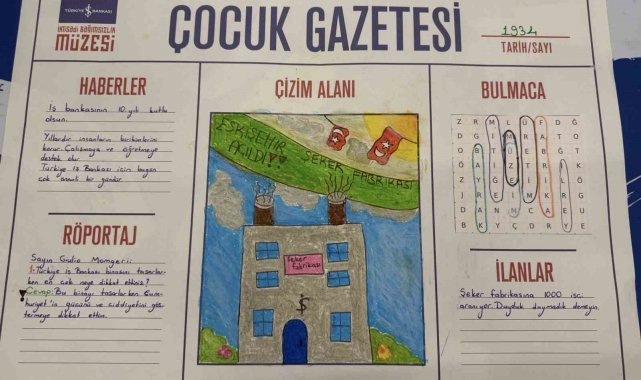 TÜRKİYE İŞ BANKASI
İKTİSADİ BAĞIMSIZLIK
MÜZESİ
ÇOCUK GAZETESİ
1934
TARİH/SAYI
HABERLER
İş bankasının 10. yılı kutlu
olsun.
Yıllardır insanların birikimlerini
korur. Çalışmaya ve öğretmeye
destek olur.
Türkiye İş Bankası için bugün
çok önemli bir gündür.
RÖPORTAJ
Sayın Giulio Momgerii:
1-Türkiye İş Bankası binasını tasarlar-
ken en çok neye dikkat ettiniz?
Cevap: Bu binayı tasarlarken Cum-
huriyet'in gücünü ve ciddiyetini gös-
termeye dikkat ettim.
ÇİZİM ALANI
ESKİŞEHİR
AÇILDI!
ŞEKER FABRİKASI
Şeker
fabrikası
BULMACA
İLANLAR
Şeker fabrikasına 1000 işçi
aranıyor. Duyduk duymadık demeyin.